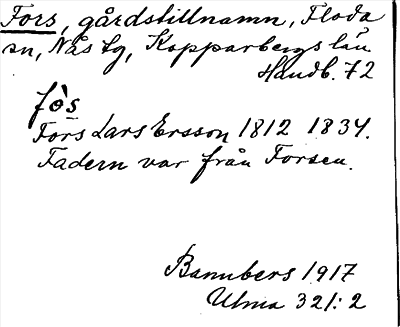 Fors, gårdstillnamn, Floda
sn, Nås tg, Kopparbergs län
Handb. 72
fò̀s
Fors Lars Ersson 1812 1834.
Fadern var från Forsen.
Bannbers 1917
Ulma 321:2